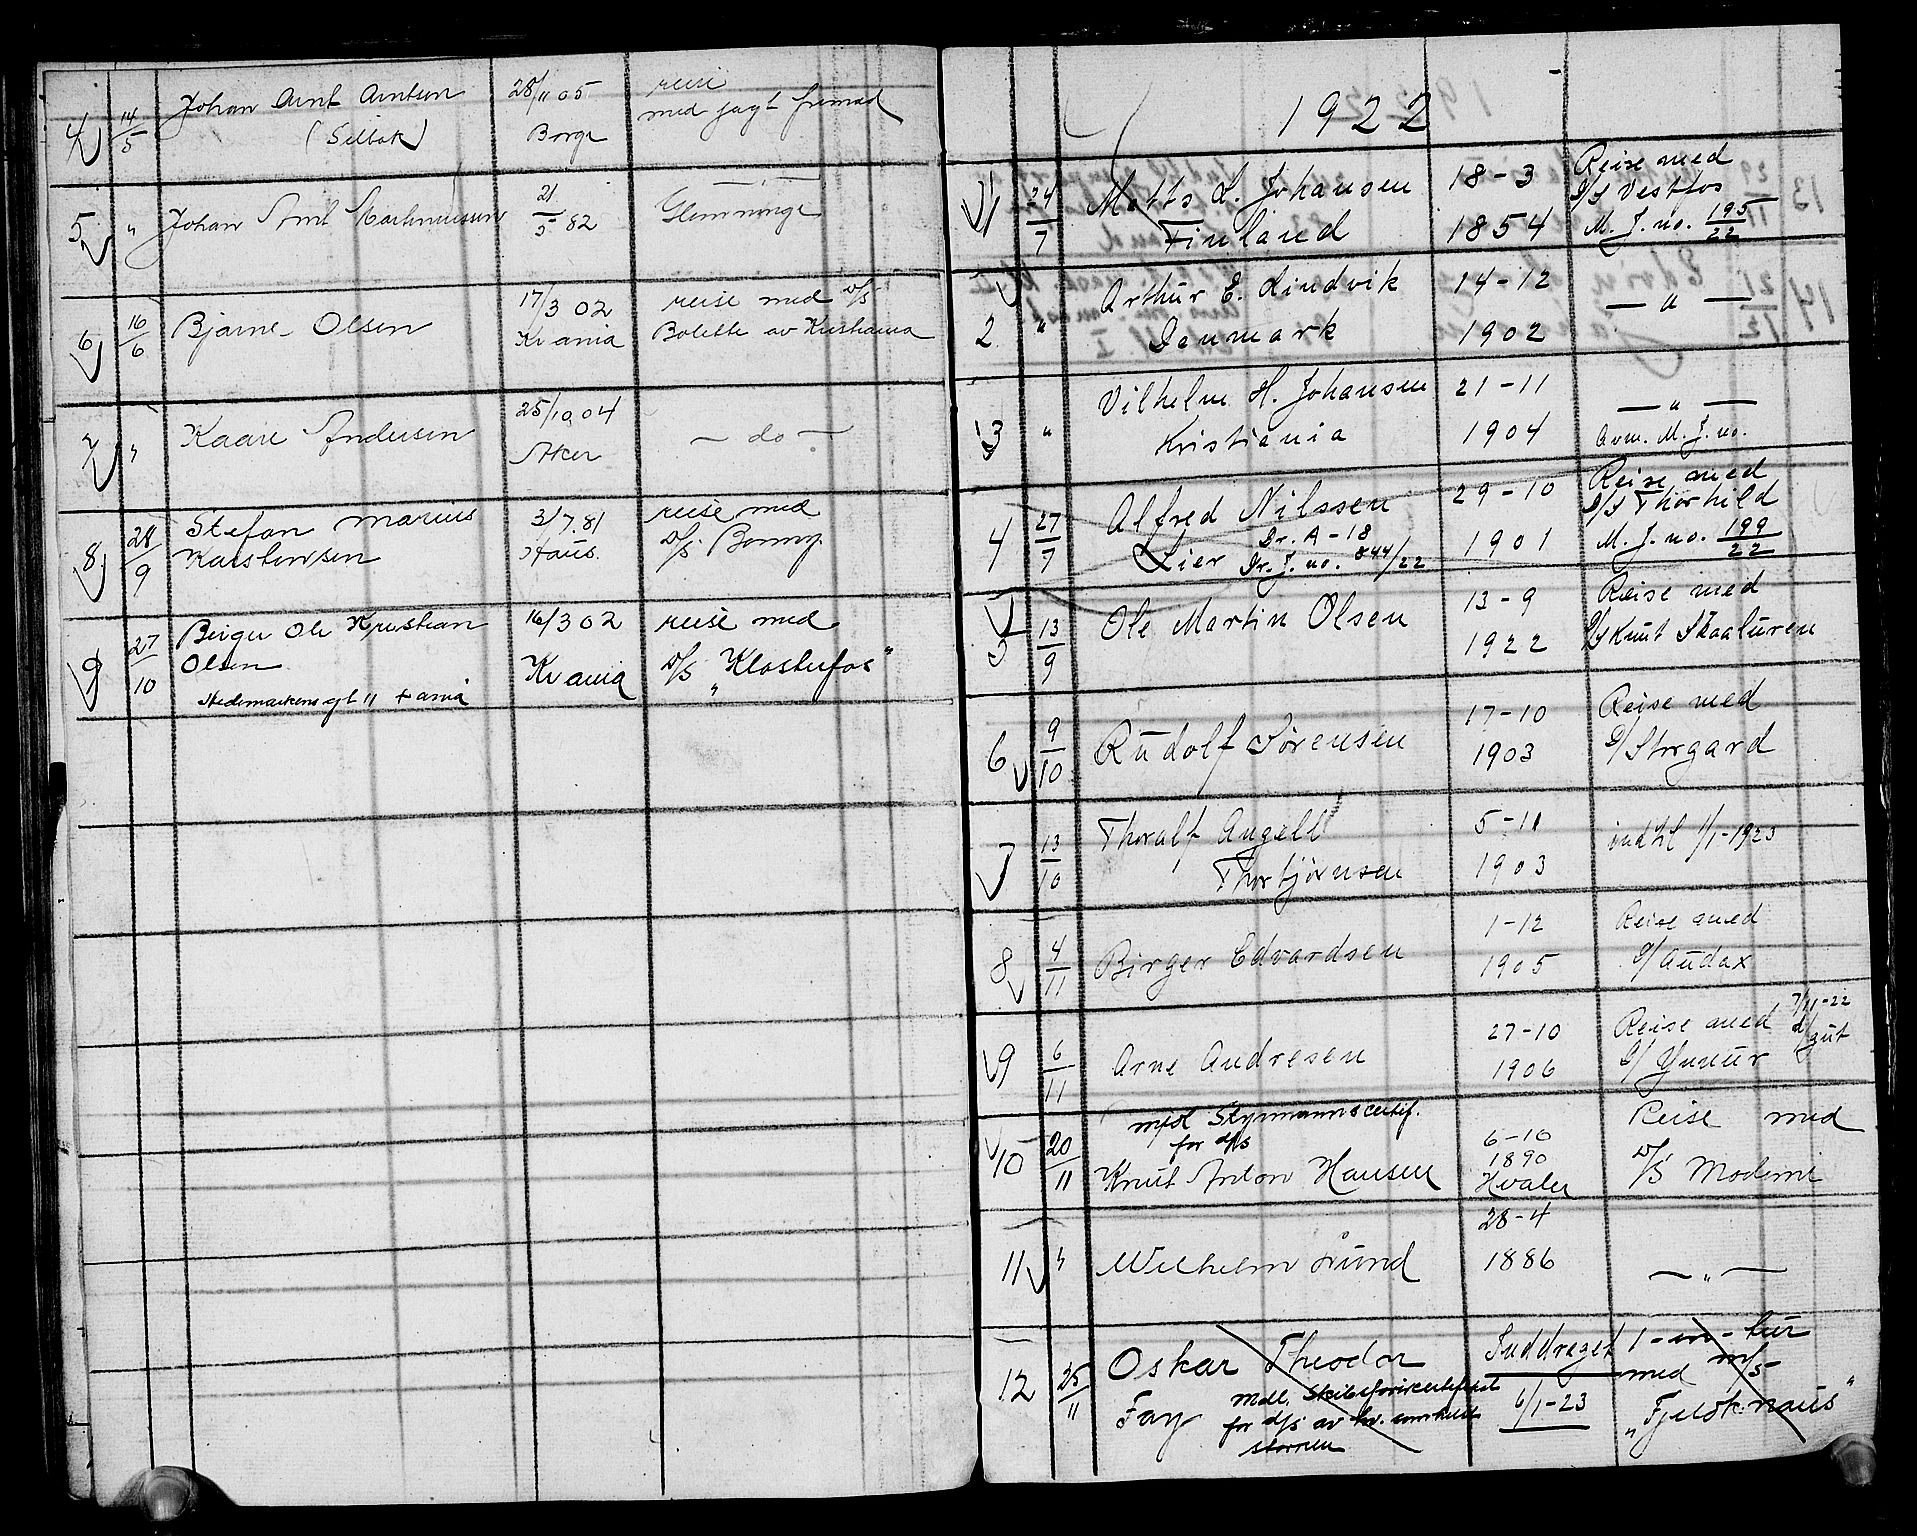 4 14/5 Johan Arnt Arntsen 28/11 05 reise
(Selbak) Borge med jagt fremad
5 " Johan Arnt 21/5 82 Glemminge
6 16/6 Bjarne Olsen 17/3 02 reise med D/S
Kr ania Bolette av Kristiania
7 " Kaare Andersen 25/10 04 — do —
Aker
8 28/9 Stefan Marius 3/7.81 reise med
Karstensen Haus. D/S. Bonny.
9 27/10 Birger Ole Kristian 16/3 02 reise med
Olsen Kr ania D/S "Klosterfos"
Hedemarkens gt 11 Krania
1922
1 24/7 Matts L. Johansen 18-3 Reise med
Finland 1854 D/S Vestfos
M. J. no. 195/22
2 " Arthur E. Lindvik 14-12 — " —
Danmark 1902
3 " Vilhelm H. Johansen 21-11 — " —
Kristiania 1904 Anm. M. J. no.
4 27/7 Alfred Nilssen 29-10 Reise med
Dr. A-18 D/S Thorhild
Lier Dr. J. no. 844/22 1901 M. J. no. 199/22
5 13/9 Ole Martin Olsen 13-9 Reise med
1922 D/S Knut Skaaluren
6 9/10 Rudolf Sørensen 17-10 Reise med
1903 D/ Storgard
7 13/10 Thoralf Angell 5-11 indtil 1/1-1923
Thorbjørnsen 1903
8 4/11 Birger Edvardsen 1-12 Reise med
1905 D/ Audax
9 6/11 Arne Andresen 27-10 Reise med 7/11-22
1906 D/ Ymur d/gut
10 20/11 m/dl Styrmannscertif. Reise med
for d/s 6-10
1890 D/S Moderni
Knut Anton Hansen Hvaler
11 " Wilhelm Lund 28-4
1886 — " —
12 25/11 Oskar Theodor Inddraget 1 - en - tur
med M/S
Fay Mdl. Skibsførercertifikat 6/1-23 "Fjeldknaus"
for d/s av hv. somhelst
størrelse